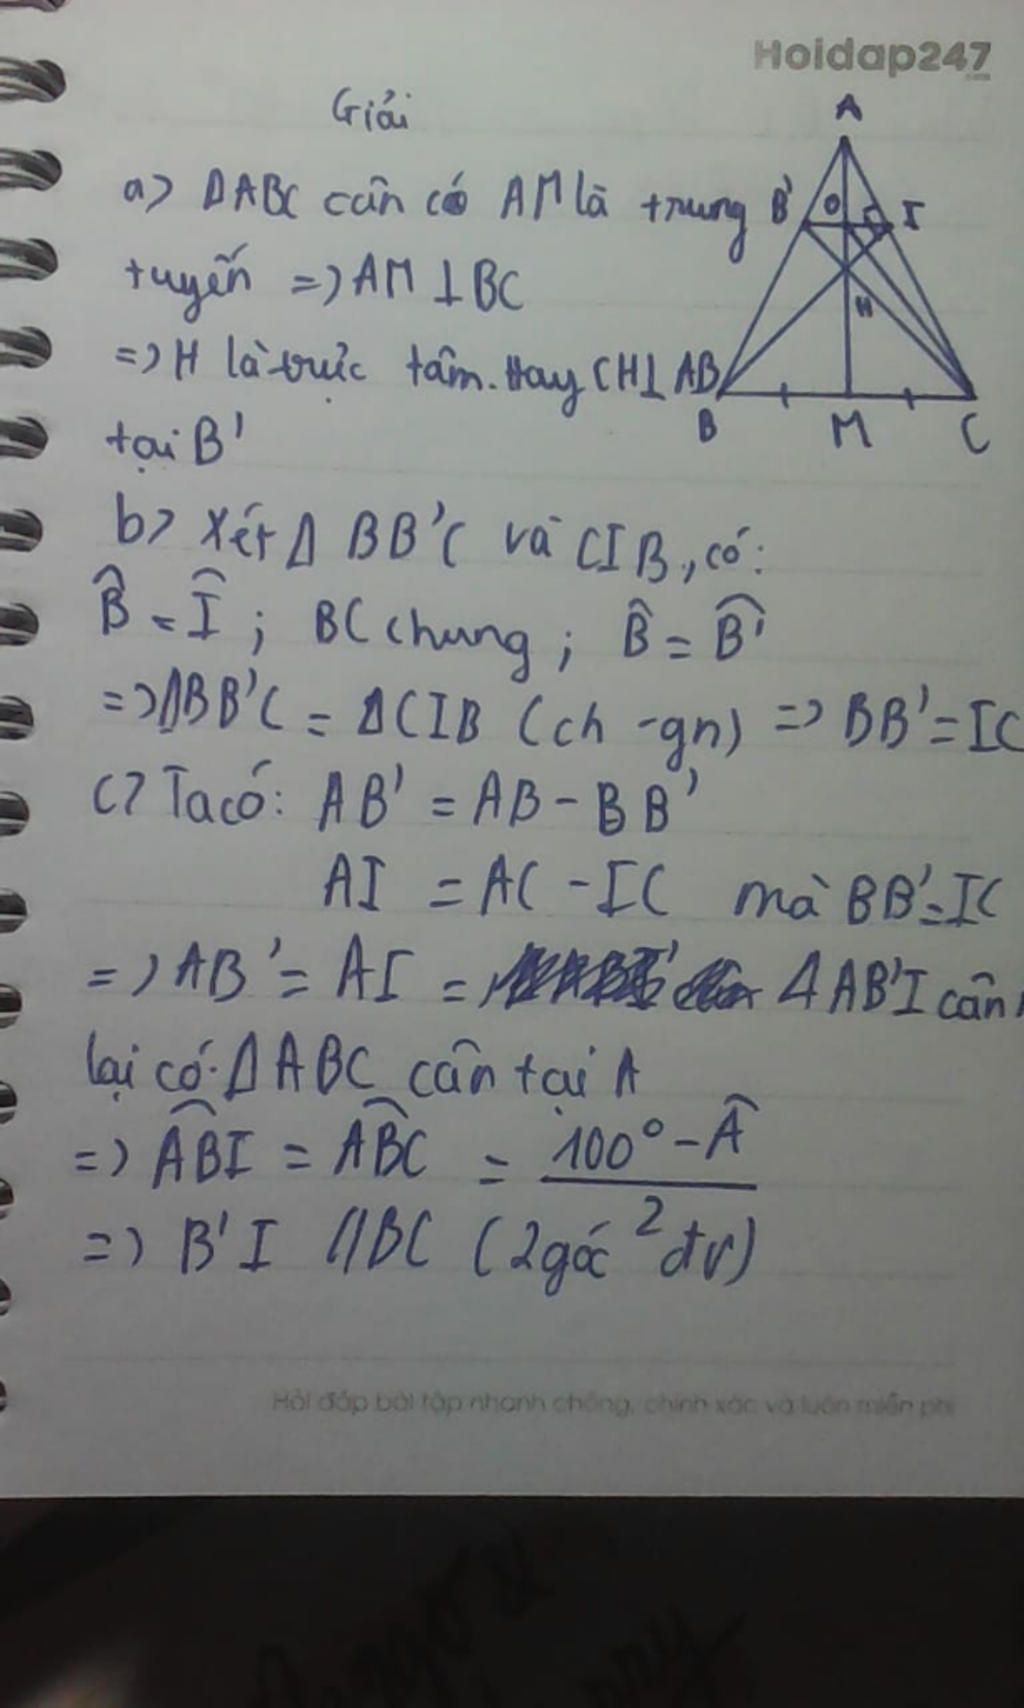 Hoidap247
.com
Giải
A
a) ΔABC cân có AM là trung
B' O I
tuyến => AM ⊥ BC
H
=> H là trực tâm. Hay CH⊥AB
B M C
tại B'
b) Xét Δ BB'C và CIB, có:
B̂ = Î ; BC chung ; B̂ = B̂'
=> ΔBB'C = ΔCIB (ch - gn) => BB' = IC
c) Ta có: AB' = AB - BB'
AI = AC - IC mà BB' = IC
=> AB' = AI = ΔAB'I cân
lại có. ΔABC cân tại A
=> ABI = ABC = 100° - Â / 2
=> B'I // BC (2 góc đv)
Hỏi đáp bài tập nhanh chóng, chính xác và luôn miễn phí